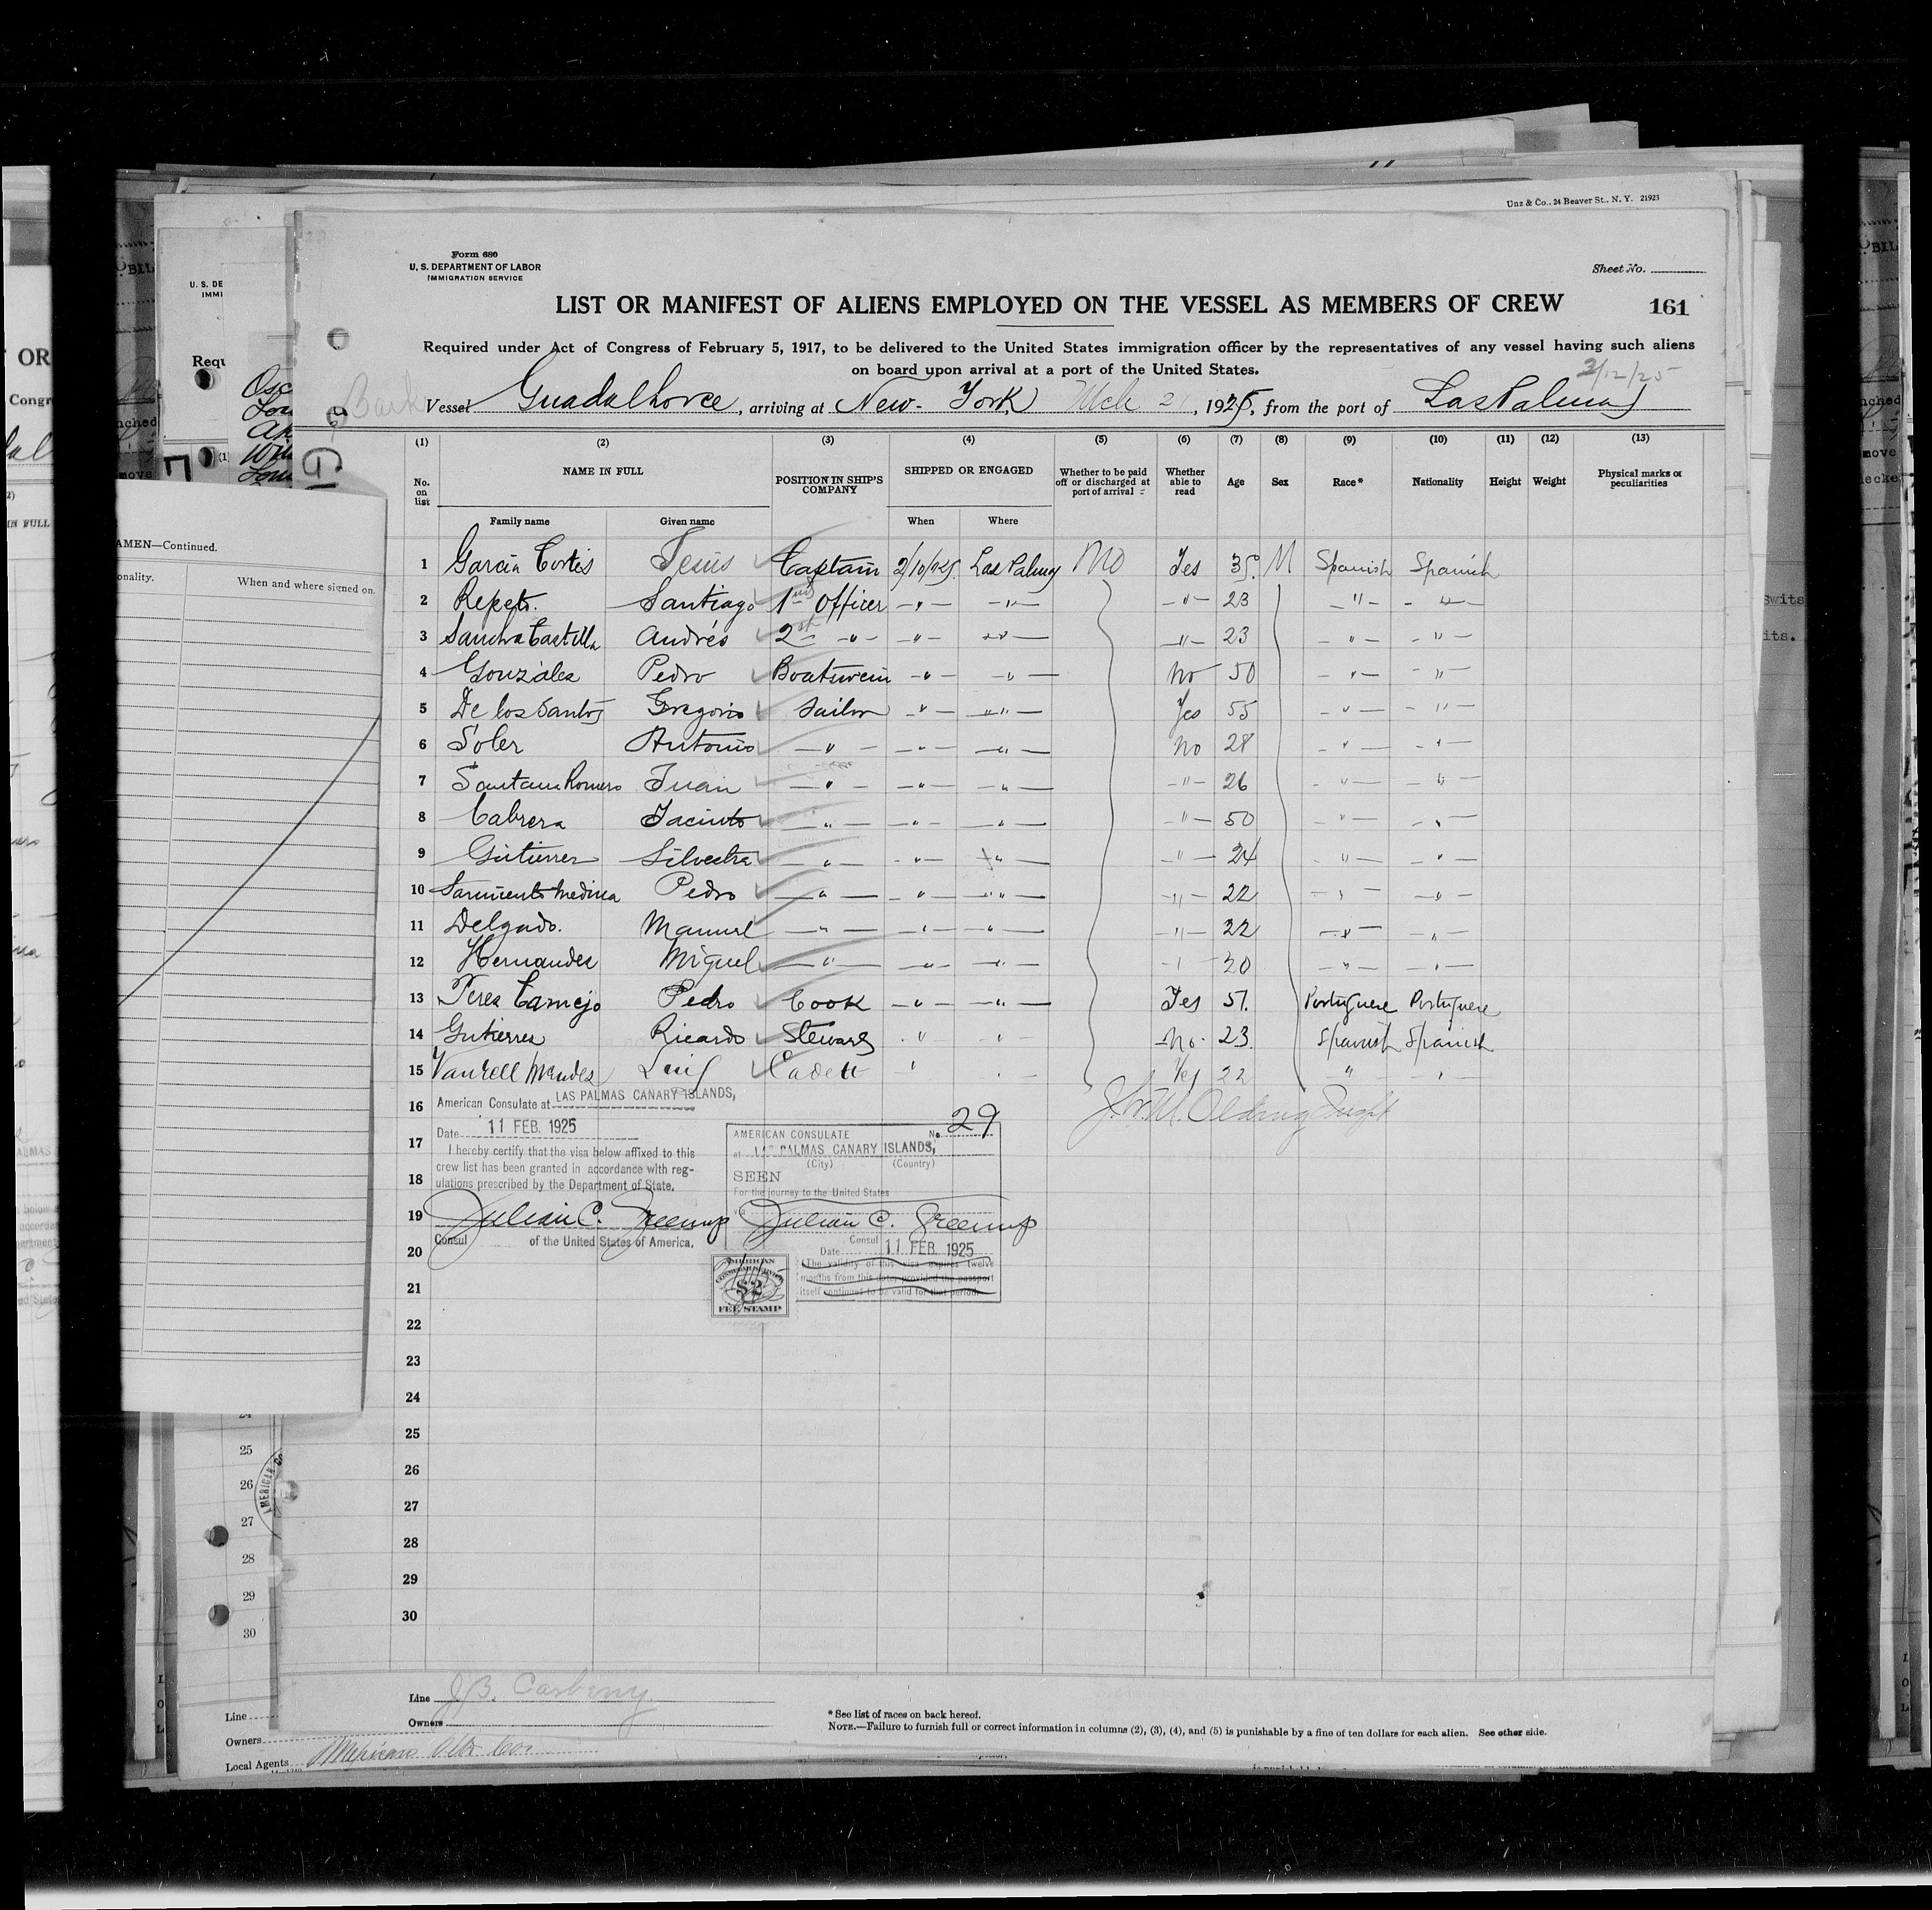 Unz & Co., 24 Beaver St., N. Y. 21923
Form 680
U. S. DEPARTMENT OF LABOR
IMMIGRATION SERVICE
Sheet No.
LIST OR MANIFEST OF ALIENS EMPLOYED ON THE VESSEL AS MEMBERS OF CREW
161
Required under Act of Congress of February 5, 1917, to be delivered to the United States immigration officer by the representatives of any vessel having such aliens
on board upon arrival at a port of the United States.
2/12/25
Bark Vessel Guadalhorce, arriving at New-York Mch 2, 1925, from the port of Las Palmas
(1) (2) (3) (4) (5) (6) (7) (8) (9) (10) (11) (12) (13)
No. on list NAME IN FULL POSITION IN SHIP'S COMPANY SHIPPED OR ENGAGED Whether to be paid off or discharged at port of arrival Whether able to read Age Sex Race* Nationality Height Weight Physical marks or peculiarities
Family name Given name When Where
1 Garcia Cortés Jesús Captain 2/10/925. Las Palmas No Yes 35. M Spanish Spanish
2 Repeto. Santiago 1 Officer " " " 23 " "
3 Sancha Castilla Andrés 2 " " " " 23 " "
4 González Pedro Boatswein " " No 50 " "
5 De los Santos Gregorio Sailor " " Yes 55 " "
6 Soler Antonio " " " No 28 " "
7 Santana Romero Juan " " " " 26 " "
8 Cabrera Jacinto " " " " 50 " "
9 Gutierrez Silvestre " " " " 24 " "
10 Sarmiento Medina Pedro " " " " 22 " "
11 Delgado. Manuel " " " " 22 " "
12 Hernandez Miguel " " " " 20 " "
13 Perez Camejo Pedro Cook " " Yes 51. Portuguese Portuguese
14 Gutierrez Ricardo Steward " " No. 23. Spanish Spanish
15 Vanrell Mendez Luis Cadett " " Yes 22 " "
16 American Consulate at LAS PALMAS CANARY ISLANDS,
Date 11 FEB. 1925
17 I hereby certify that the visa below affixed to this
crew list has been granted in accordance with reg-
18 ulations prescribed by the Department of State.
19 Julian C. Greenup
Consul of the United States of America.
AMERICAN CONSULATE No. 29
at LAS PALMAS CANARY ISLANDS,
(City) (Country)
SEEN
For the journey to the United States
via
Julian C. Greenup
Consul
Date 11 FEB. 1925
The validity of this visa expires twelve
months from this date, provided the passport
itself continues to be valid for that period.
AMERICAN
$2
FEE STAMP
20
21
22
23
24
25
26
27
28
29
30
Line J.B. Carberry
Owners
* See list of races on back hereof.
NOTE.—Failure to furnish full or correct information in columns (2), (3), (4), and (5) is punishable by a fine of ten dollars for each alien. See other side.
AMEN—Continued.
onality. When and where signed on.
U. S. DE
IMMI
Requ
25
26
27
28
29
30
Line
Owners
Local Agents